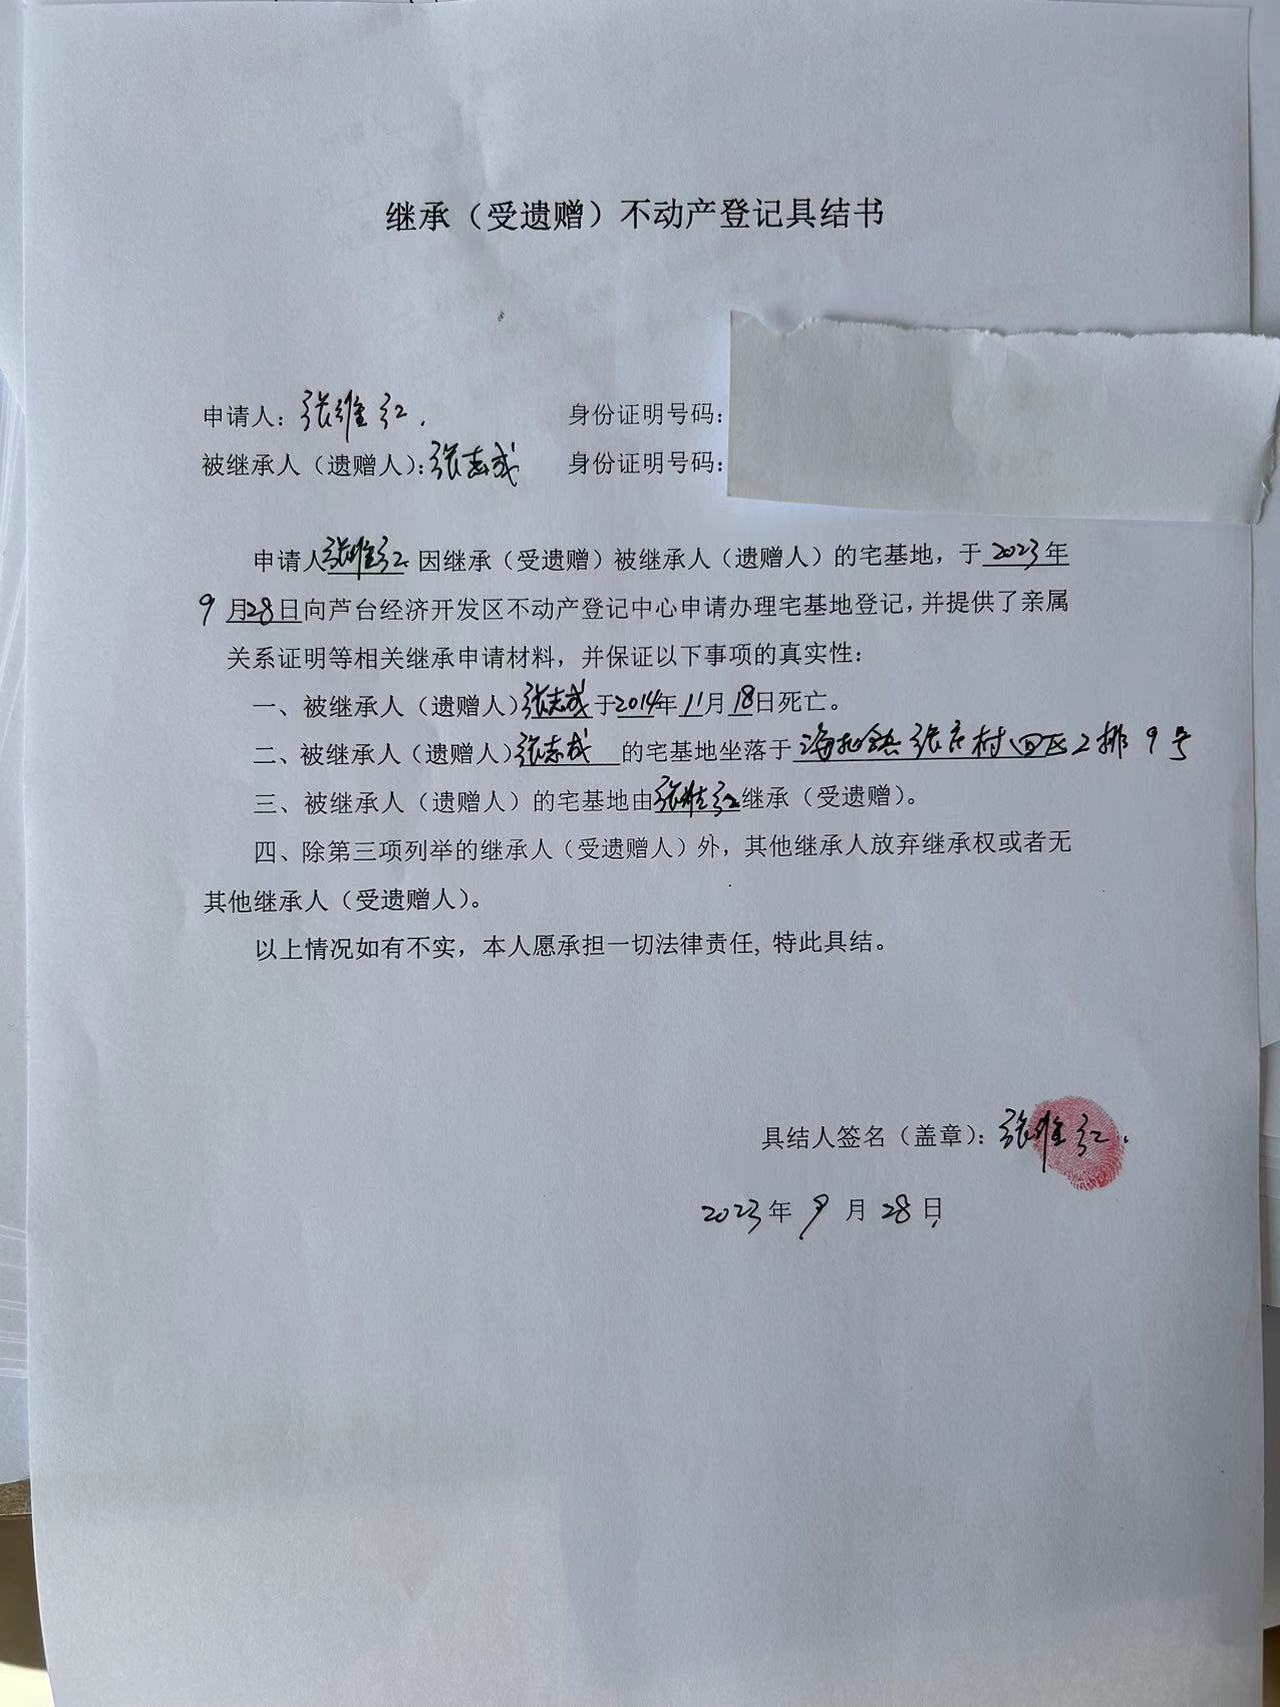 继承（受遗赠）不动产登记具结书
申请人：张维红. 身份证明号码：
被继承人（遗赠人）：张志成 身份证明号码：
申请人张维红因继承（受遗赠）被继承人（遗赠人）的宅基地，于 2023年
9月28日向芦台经济开发区不动产登记中心申请办理宅基地登记，并提供了亲属
关系证明等相关继承申请材料，并保证以下事项的真实性：
一、被继承人（遗赠人）张志成于2014年11月18日死亡。
二、被继承人（遗赠人）张志成的宅基地坐落于海北镇张庄村四区2排9号
三、被继承人（遗赠人）的宅基地由张维红继承（受遗赠）。
四、除第三项列举的继承人（受遗赠人）外，其他继承人放弃继承权或者无
其他继承人（受遗赠人）。
以上情况如有不实，本人愿承担一切法律责任, 特此具结。
具结人签名（盖章）：张维红.
2023年9月28日